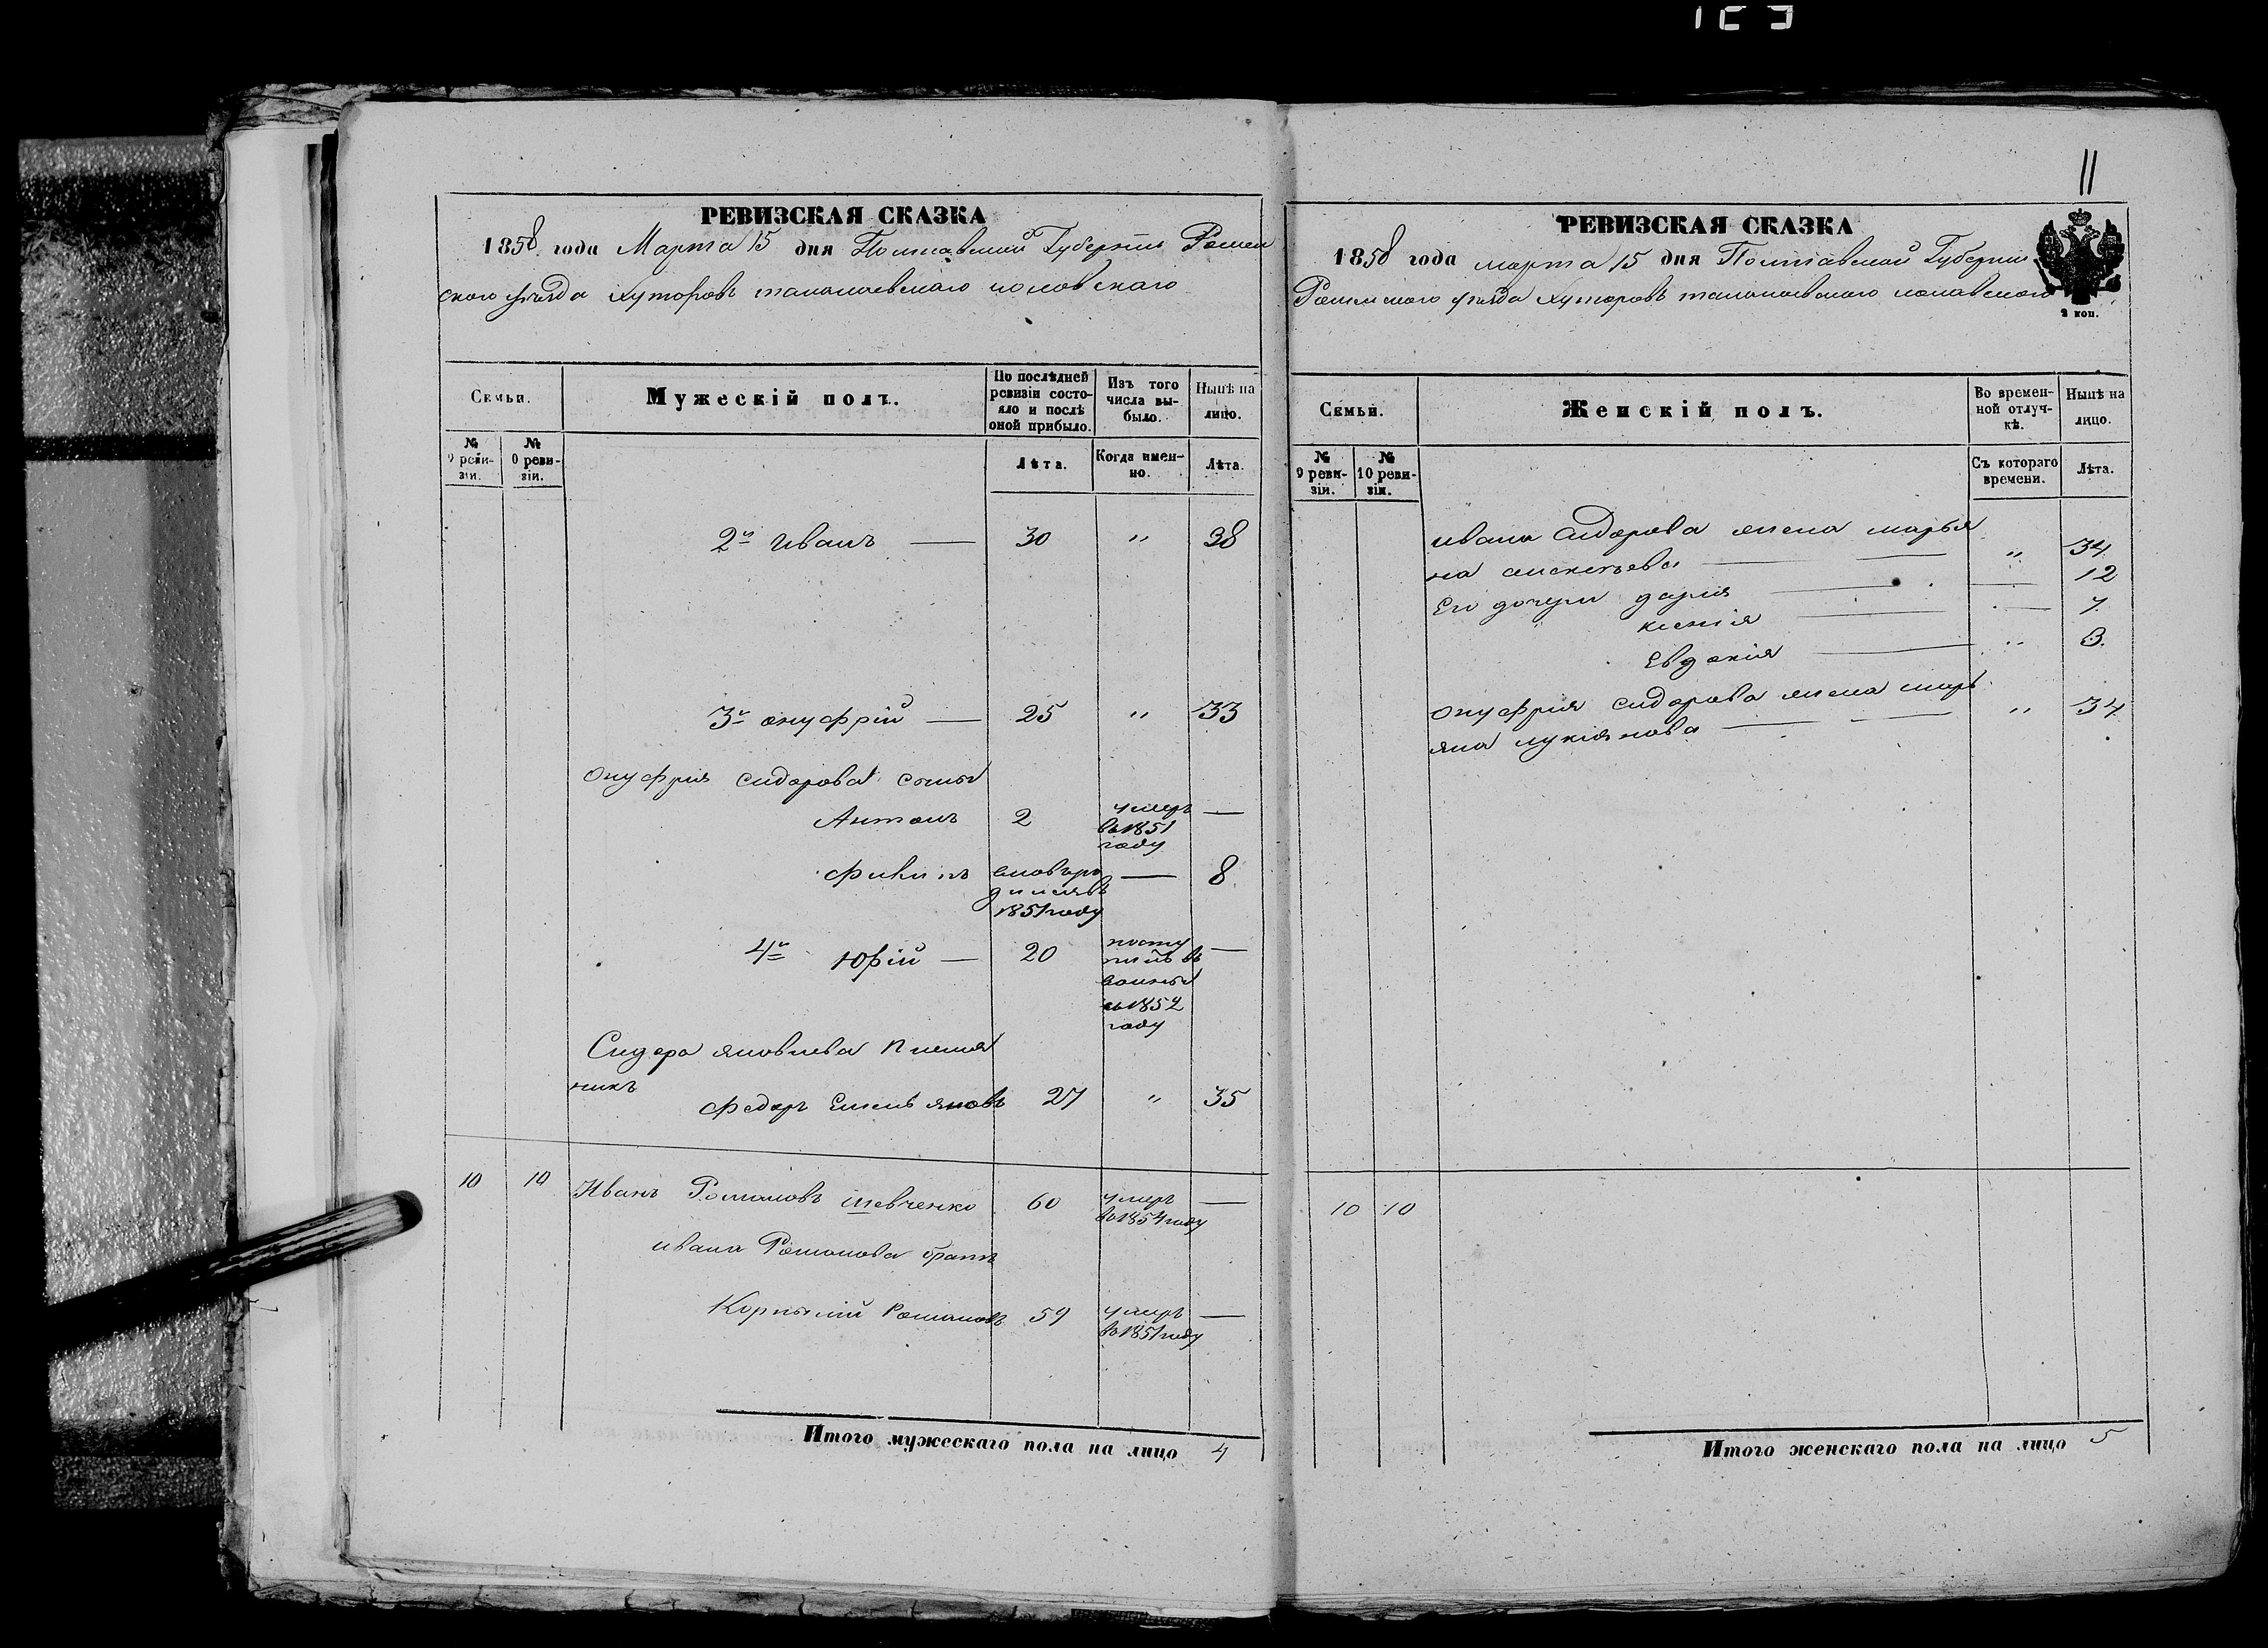 11
РЕВИЗСКАЯ СКАЗКА
1858 года Марта 15 дня Полтавской Губернии Ромен
ского уѣзда Хуторовъ
Семьи.
Мужескій полъ.
По послѣдней ревизіи состояло и послѣ оной прибыло.
Изъ того числа выбыло.
Нынѣ на лицо.
№ 9 ревизіи.
№ 0 ревизіи.
Лѣта.
Когда именно.
Лѣта.
2й Иванъ — 30 " 38
3й онуфрій — 25 " 33
Онуфрия сидорова сыны
Антонъ 2 умеръ во 1851 году —
1851 году — 8
4й Юрій — 20 —
1852 году
Сидора яковлева племян
никъ
Федоръ Емельяновъ 27 " 35
10 10 Иванъ Романовъ Шевченко 60 умеръ во 1854 году —
ивана Романова братъ
Корнилій Романовъ 59 умеръ во 1851 году —
Итого мужескаго пола на лицо 4
РЕВИЗСКАЯ СКАЗКА
1858 года марта 15 дня Полтавской Губернии
Роменского уѣзда Хуторовъ
2 коп.
Семьи.
Женскій полъ.
Во временной отлучкѣ.
Нынѣ на лицо.
№ 9 ревизіи.
№ 10 ревизіи.
Съ котораго времени.
Лѣта.
ивана Сидорова жена марья
на " 34
Его дочери дария — 12
ксения — 7
Евдокия " 3
Онуфрия сидорова жена марь
яна лукіянова " 34
10 10
Итого женскаго пола на лицо 5